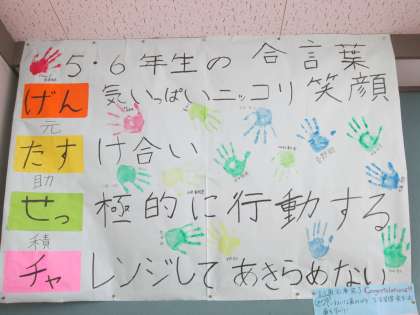 5・6年生の合言葉
げん気いっぱいニッコリ笑顔
元
たすけ合い
助
せっ極的に行動する
積
チャレンジしてあきらめない